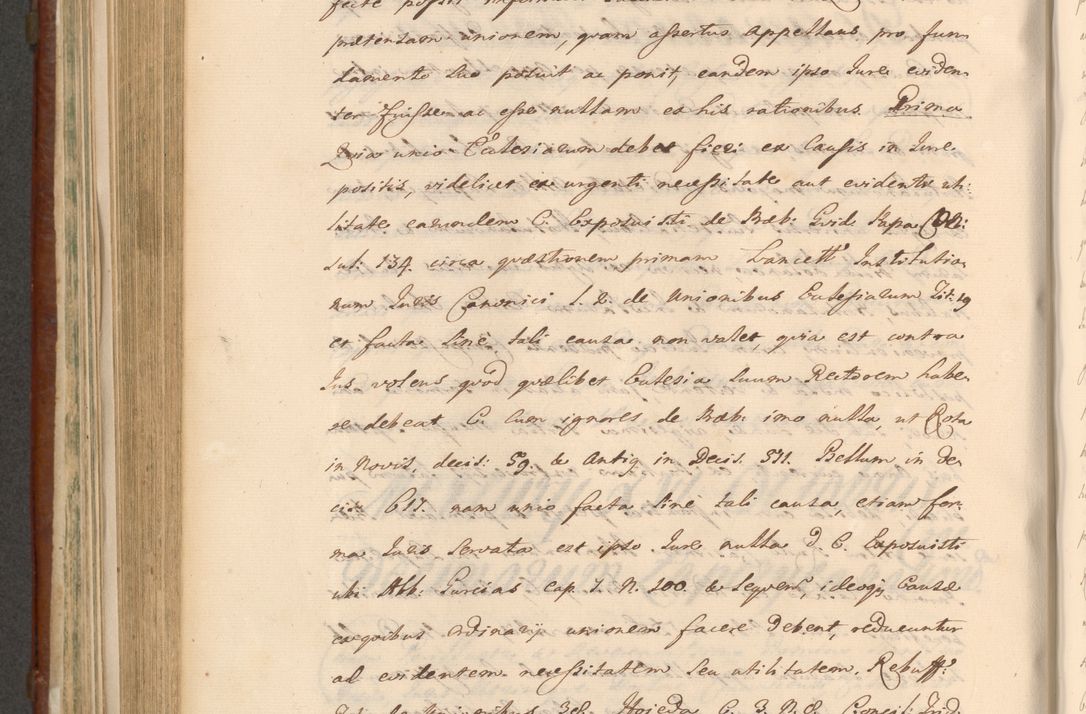 prætensam unionem, quam assertus appellans pro fun-
damento suo posuit ac ponit, eandem ipso Jure eviden-
ter fuisse ac esse nullam ex his rationibus. Primo
Quia unio Ecclesiarum debet fieri ex Causis in Jure
positis, videlicet ex urgenti necessitate aut evidenti uti-
litate earundem C. Exposuisti de Præb: Gvid. Papa
134. circa quæstionem primam Lancett Institutio-
num Juris Canonici l. 2. de Unionibus Ecclesiarum Tit: 19
et facta sine tali causa non valet, quia est contra
Jus volens quod quælibet Ecclesia suum Rectorem habe-
re debeat C. Cum ignores de Præb: imo nulla, ut Rota
in Novis, decis: 59. & Antiq in Decis. 511. Bellum in de-
cis: 617. nam unio facta sine tali causa, etiam for-
ma Juris servata est ipso Jure nulla d. C. Exposuisti
ubi Abb: Garcias cap. 1. N. 200. & Seqvent, ideoq; Causæ
ex quibus Ordinarij unionem facere debent, reducuntur
ad evidentem necessitatem seu utilitatem. Rebuff:
38. Hojeda C. 3. N. 8. Concil: Trid.